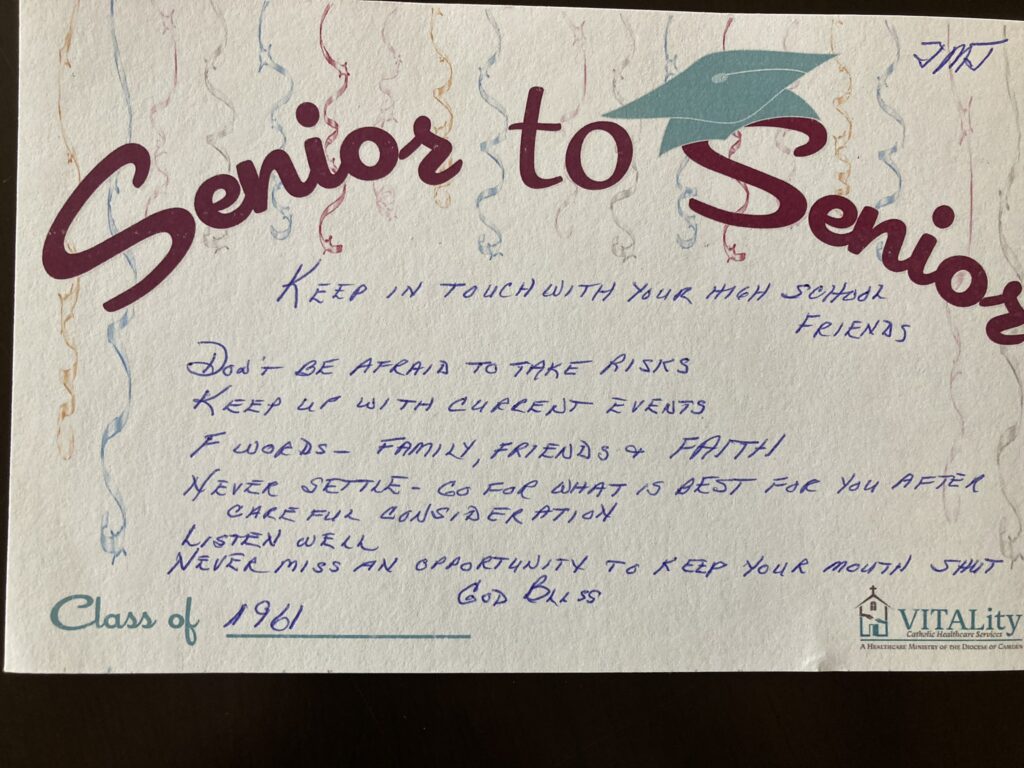 JMJ
Senior to Senior
KEEP IN TOUCH WITH YOUR HIGH SCHOOL
FRIENDS
DON'T BE AFRAID TO TAKE RISKS
KEEP UP WITH CURRENT EVENTS
F WORDS - FAMILY, FRIENDS & FAITH
NEVER SETTLE - GO FOR WHAT IS BEST FOR YOU AFTER
CAREFUL CONSIDERATION
LISTEN WELL
NEVER MISS AN OPPORTUNITY TO KEEP YOUR MOUTH SHUT
GOD BLESS
Class of 1961
VITALity
Catholic Healthcare Services
A HEALTHCARE MINISTRY OF THE DIOCESE OF CAMDEN